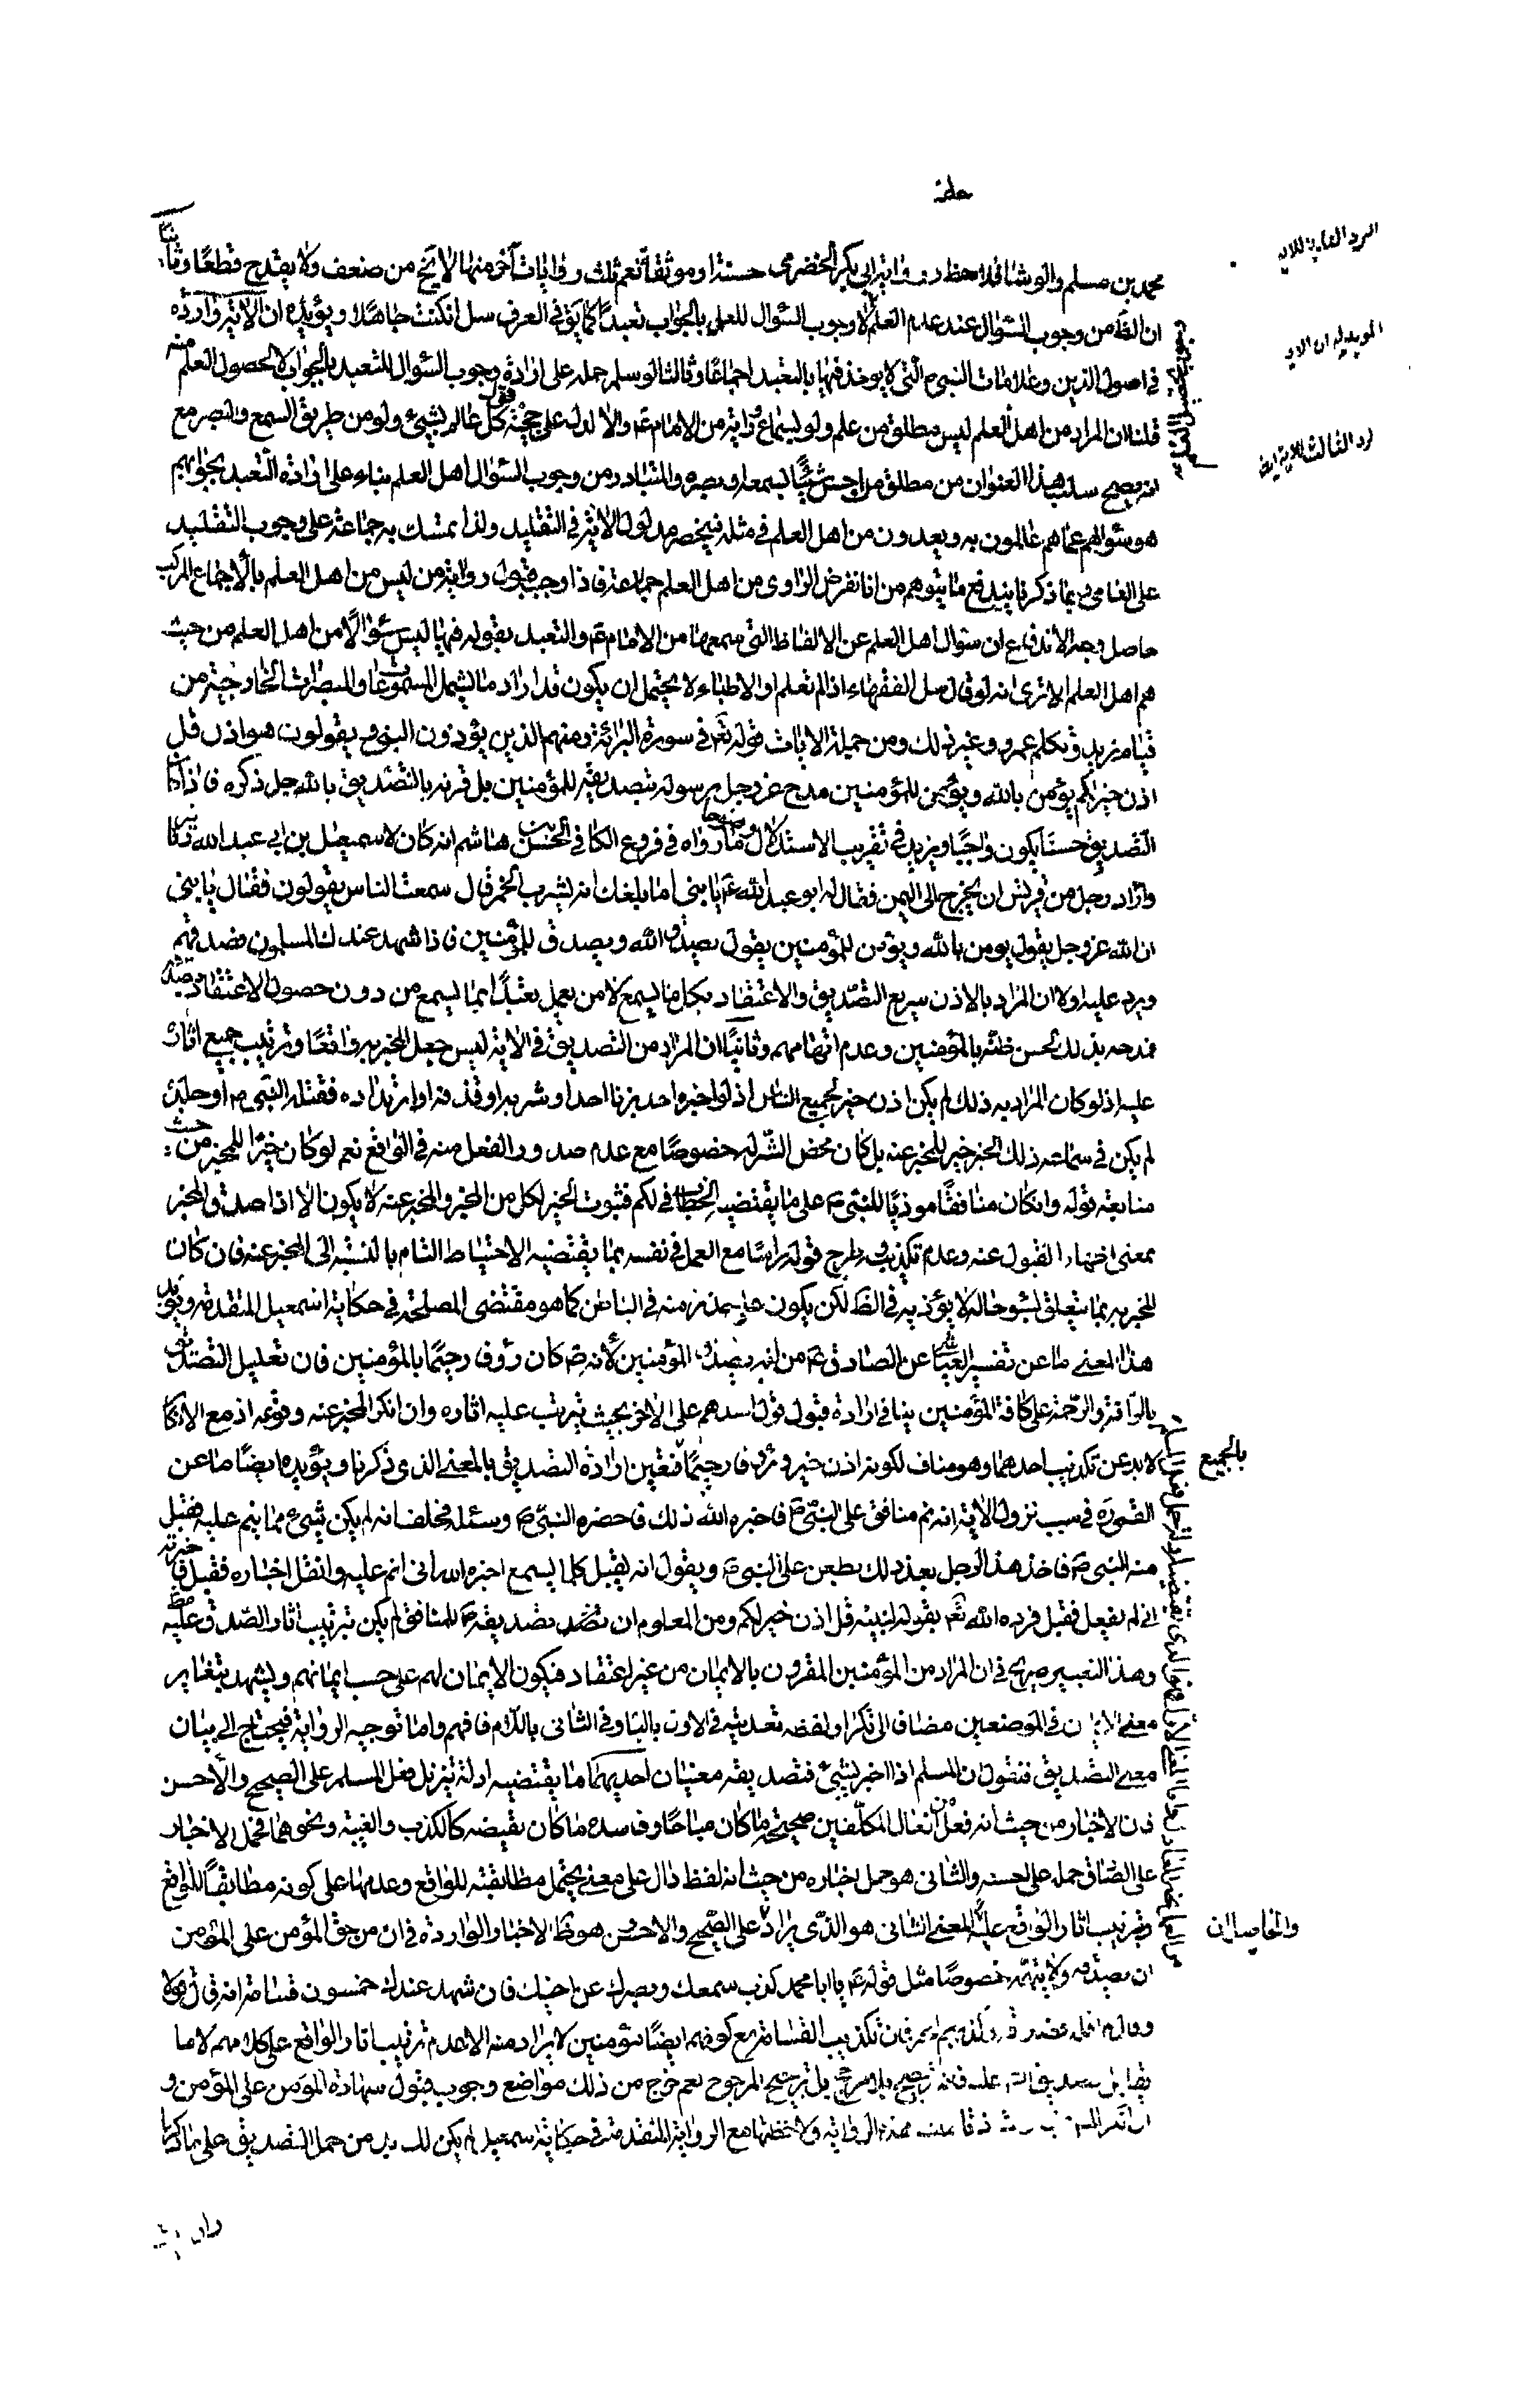 محمد بن مسلم والوشا فلاحظ رواية ابي بكر الحضرمي حسنة او موثقة نعم ثلث روايات آخر منها لا يخ من ضعف ولا يقدح قطعًا وثانيا
ان الظَّ من وجوب السّؤال عند عدم العلم لا وجوب السّؤال للعمل بالجواب تعبدًا كما يقَ في العرف سل ان كنت جاهلا ويؤيّده ان الاية واردة
في اصول الدين وعلامات النبي ص التى لا يؤخذ فيها بالتعبد اجماعًا وثالثا لو سلم حمله على ارادة وجوب السّؤال للتعبد بالجواب لا لحصول العلم منه
قلنا ان المراد من اهل العلم ليس مطلق من علم ولو بسماع رواية من الامام ع والا لدل على حجّية قول كل عالم بشيء ولو من طريق السمع والبصر مع
انه يصح سلب هذا العنوان من مطلق من احسّ شيئًا بسمعه او بصره والمتبادر من وجوب السّؤال اهل العلم بناء على ارادة التّعبد بجوابهم
هو سؤالهم عمّا هم عالمون به ويعدون من اهل العلم في مثله فينحصر مدلول الاية في التقليد ولذا تمسّك به جماعة على وجوب التقليد
على العامي وبما ذكرنا يندفع ما يتوهم من انا نفرض الراوى من اهل العلم فاذا وجب قبول روايته من ليس من اهل العلم بالاجماع المركب
حاصل وجه الاندفاع ان سؤال اهل العلم عن الالفاظ التى سمعها من الامام ع والتعبد بقوله فيها ليس سؤالًا من اهل العلم من حيث
هم اهل العلم الا ترى انه لو قال سل الفقهاء اذا لم تعلم او الاطباء لا يحتمل ان يكون قد اراد ما يشمل المسموعات والمبصرات الخارجية من
قيام زيد وتكلم عمرو وغير ذلك ومن جملة الايات قوله تعَ في سورة البرائة ومنهم الذين يؤذون النبي ويقولون هو اذن قل
اذن خير لكم يؤمن بالله ويؤمن للمؤمنين مدح عز وجل رسوله بتصديقه للمؤمنين بل قرنه بالتّصديق بالله جل ذكره فاذا كان
التصديق حسنًا يكون واجبًا ويزيد في تقريب الاستدلال وضوحا ما رواه في فروع الكافي في الحسن بن هاشم انه كان لاسمعيل بن ابي عبد الله دنانير
واراد رجل من قريش ان يخرج الى اليمن فقال له ابو عبد الله ع يا بني اما بلغك انه يشرب الخمر قال سمعت الناس يقولون فقال يا بني
ان الله عز وجل يقول يؤمن بالله ويؤمن للمؤمنين يقول يصدق الله ويصدق للمؤمنين فاذا شهد عندك المسلمون فصدقهم
ويرد عليه اولا ان المراد بالاذن سريع التصّديق والاعتقاد بكل ما يسمع لا من يعمل تعبدًا بما يسمع من دون حصول الاعتقاد بصدقه
فمدحه بذلك لحسن ظنّه بالمؤمنين وعدم اتهامهم وثانيًا ان المراد من التصديق في الاية ليس جعل المخبر به واقعًا وترتيب جميع اثاره
عليه اذ لو كان المراد به ذلك لم يكن اذن خير لجميع الناس اذ لو اخبر واحد بزنا احد او شربه او قذفه او ارتداده فقتله النبي ص او جلده
لم يكن في سماعه ذلك الخبر خير للمخبر عنه بل كان محض الشر له خصوصًا مع عدم صدور الفعل منه في الواقع نعم لو كان خيرا للمخبر من حيث
متابعة قوله وان كان منافقًا موذيًا للنبّي ص على ما يقتضيه الخطاب في لكم فثبوت الخير لكل من المخبر والمخبر عنه لا يكون الا اذا صدق المخبر
بمعنى اظهار القبول عنه وعدم تكذيبه وطرح قوله راسًا مع العمل في نفسه بما يقتضيه الاحتياط التام بالنسبة الى المخبر عنه فان كان
المخبر به بما يتعلق بسوء حاله لا يؤذيه في الظَّ لكن يكون على حذر منه في الباطن كما هو مقتضى المصلحة في حكاية اسمعيل المتقدمة ويؤيد
هذا المعنى ما عن تفسير العياشي عن الصادق ع من انه يصدق المؤمنين لأنه ص كان رؤفا رحيمًا بالمؤمنين فان تعليل التصديق
بالرّافة والرّحمة على كافة المؤمنين ينافي ارادة قبول قول احدهم على الاخر بحيث يترتب عليه اثاره وان انكر المخبر عنه وقوعه اذ مع الانكار
لا بد عن تكذيب احدهما وهو مناف لكونه اذن خير ورؤفا رحيمًا بالجميع فتعين ارادة التصديق بالمعنى الذى ذكرنا ويؤيده ايضًا ما عن
القمي ره في سبب نزول الاية انه نم منافق على النبّي ص فاخبره الله ذلك فاحضره النبّي ص وسئله فحلف انه لم يكن شيء مما ينم عليه فقبل
منه النبي ص فاخذ هذا الرجل بعد ذلك يطعن على النبي ص ويقول انه يقبل كلما يسمع اخبره الله انى انم عليه وانقل اخباره فقبل فاخبرته
انى لم افعل فقبل فرده الله تعَ بقوله لنبيه قل اذن خير لكم ومن المعلوم ان تصديقه ص للمنافق لم يكن بترتيب اثار الصّدق عليه مطَ
وهذا التفسير صريح في ان المراد من المؤمنين المقرون بالايمان من غير اعتقاد فيكون الايمان لهم على حسب ايمانهم ويشهد بتغاير
معنى الايمان في الموضعين مضافا الى تكرار لفظه تعديته في الاول بالباء وفي الثانى باللّام فافهم واما توجيه الرواية فيحتاج الى بيان
معنى التصديق فنقول ان المسلم اذا اخبر بشيء فتصديقه معنيان احديهما ما يقتضيه ادلة تنزيل فعل المسلم على الصحيح والأحسن
فان الاخبار من حيث انه فعل من افعال المكلّفين صحيحه ما كان مباحًا وفاسده ما كان نقيضه كالكذب والغيبة ونحوهما فحمل الاخبار
على الصّادق حمله على احسنه والثانى هو حمل اخباره من حيث انه لفظ دال على معنى يحتمل مطابقته للواقع وعدمها على كونه مطابقًا للواقع
وترتيب اثار الواقع عليه والحاصل ان المعنى الثانى هو الذّى يراد على الصّحيح والاحسن وهو ظَ الاخبار الواردة في ان من حق المؤمن على المؤمن
ان يصدقه ولا يتهمه خصوصًا مثل قوله ع يا ابا محمد كذب سمعك وبصرك عن اخيك فان شهد عندك خمسون قسامة انه قال قولا
وقال لم اقله فصدقه وكذبهم فان تكذيب القسامة مع كونهم ايضًا مؤمنين لا يراد منه الا عدم ترتيب اثار الواقع على كلامهم لا ما
يقابل تصديق عليه فانه ترجيح بلا مرجح بل ترجيح المرجوح نعم خرج من ذلك مواضع وجوب قبول شهادة المؤمن على المؤمن و
هذه الرواية ولاحظتها مع الرواية المتقدمة في حكاية اسمعيل لم يكن لك بد من حمل التصديق على ما ذكرنا
الرد الثانى للاية
المويد له ان الاية
رد الثالث للاية ايضا
بالجميع
والحاصل ان